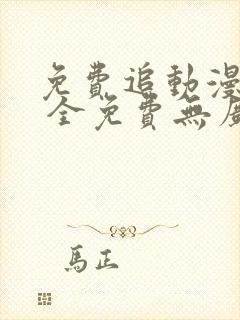 免費追動漫
全免費無
馬正